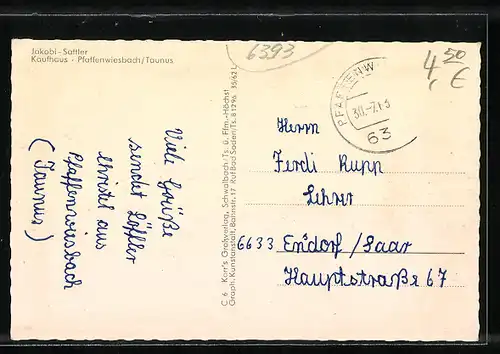 Jakobi-Sattler
Kaufhaus · Pfaffenwiesbach/Taunus
6393
4,50 €
PFAFFENW
63
Viele Grüße
sendet Löfler
Christel aus
Pfaffenwiesbach
(Taunus)
C 6 Korr's Großverlag, Schwalbach/Ts. ü. Ffm.-Höchst
Graph. Kunstanstalt, Bahnstr. 17 Ruf Bad Soden/Ts. 81296 35/62 L
Herrn
Ferdi Rupp
Lehrer
6633 Ensdorf/Saar
Hauptstraße 67